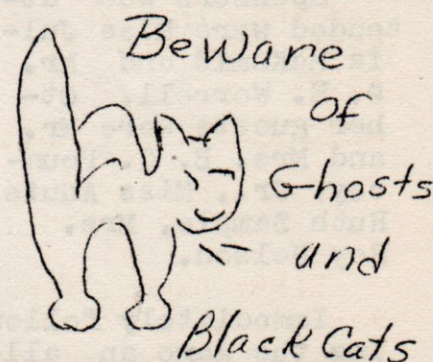 Beware
of
Ghosts
and
Black Cats